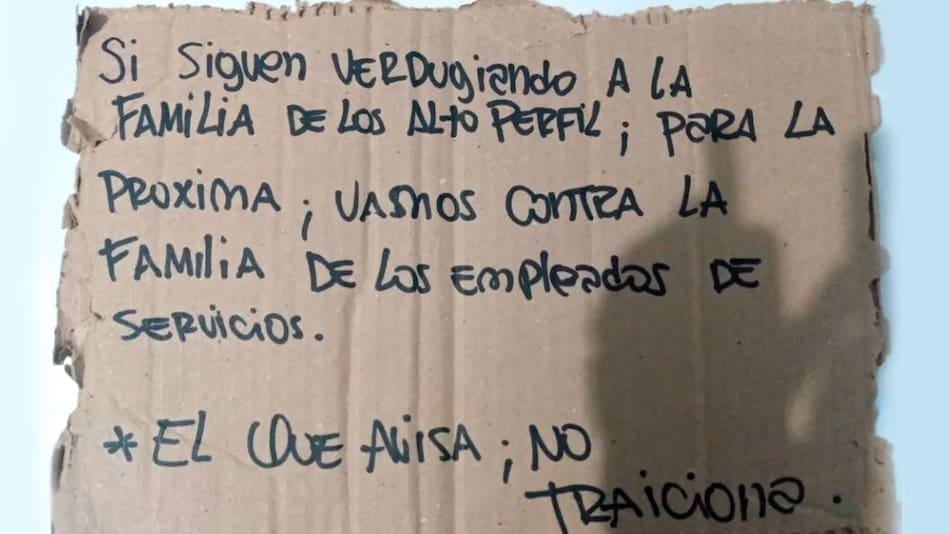 Si Siguen VERDugiando A LA
FAMiLiA DE Los Alto PERFiL ; PARA LA
PROXIMA ; VAMOS CONTRA LA
FAMiliA DE Los EmplEados DE
SERViCiOS.
* EL QUE AViSA ; NO
TRAiCiona.